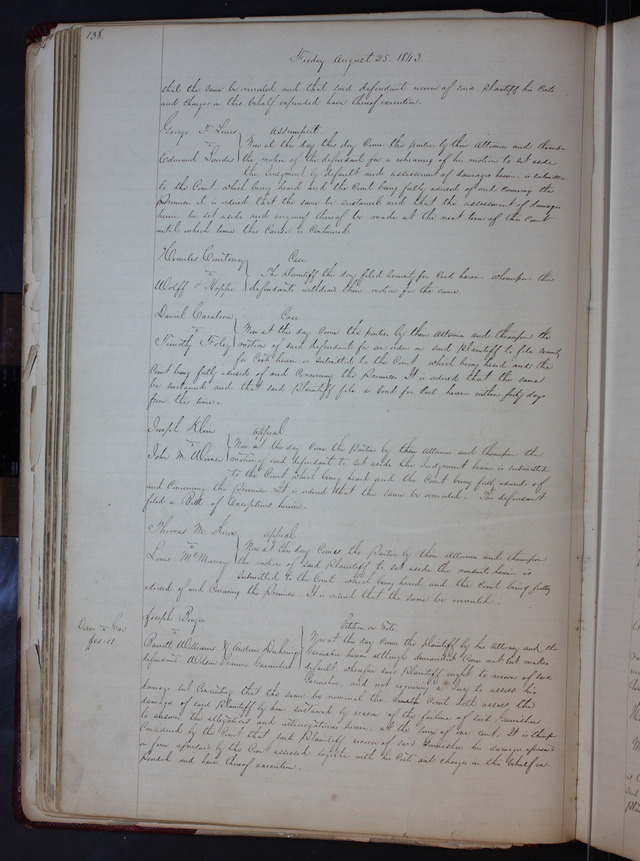 138.
Friday August 25. 1843.
that the same be overruled and that said defendant recover of said Plaintiff his Costs
and charges in this behalf expended have thereof execution.
George St Louis Assumpsit
vs Now at this day come the parties by their Attornies and thereupon
Edmund Sander the motion of the defendant for a rehearing of his motion to set aside
the Judgment by default and assessment of damages herein is submitted
to the Court, which being heard and the Court being fully advised of and concerning the
Premises it is ordered that the same be sustained and that the assessment of damages
herein be set aside and enquiry thereof be made at the next term of this Court
until which time the Cause is Continued.
Hercules Case
vs The Plaintiff this day filed Security for Cost herein whereupon the
Wolff & Hoppe defendants withdraw their motion for the same.
Daniel Case
vs Now at this day come the parties by their Attornies and thereupon the
Timothy Foley motion of said defendant for an order on said Plaintiff to file Security
for Costs herein is submitted to the Court, which being heard and the
Court being fully advised of and Concerning the Premises It is ordered that the same
be sustained and that said Plaintiff file a bond for Cost herein within forty days
from this time.
Joseph Klein Appeal
vs Now at this day come the Parties by their Attornies and thereupon the
John M. Wimer motion of said defendant to set aside the Judgment herein is submitted
to the Court which being heard and the Court being fully advised of
and Concerning the Premises It is ordered that the same be overruled. The defendant
filed a Bill of Exceptions herein.
Thomas M. Appeal
vs Now at this day Comes the Parties by their Attornies and thereupon
Louis McMurray the motion of said Plaintiff to set aside the nonsuit herein is
submitted to the Court which being heard and the Court being fully
advised of and Concerning the Premises. It is ordered that the same be overruled.
Joseph Petition on Note
Dam vs Gar
vs Now at this day come the Plaintiff by his Attorney and the
$00.01
Barrett Williams & Andrew Garnishee herein although demanded Comes not but makes
defendants. Wilson Garnishee default, wherefore said Plaintiff ought to recover of said
Garnishee, and not requiring a Jury to assess his
damages but Consenting that the same be nominal the Court doth assess the
damages of said Plaintiff by him sustained by reason of the failure of said Garnishee
to answer the allegations and interrogatories herein, at the sum of one cent. It is therefore
Considered by the Court that said Plaintiff recover of said Garnishee his damages aforesaid
in form aforesaid by the Court assessed together with his Costs and charges in this behalf
and have thereof execution.